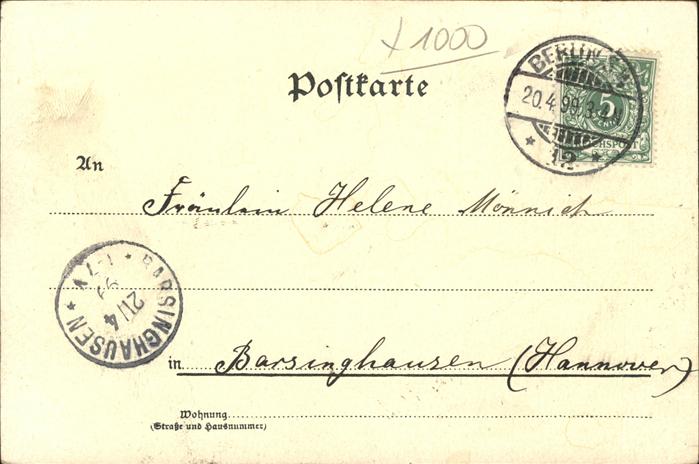 +1000
Postkarte
BERLIN
20.4.99.3-4N
* 12 *
5
REICHSPOST
An
Fräulein Helene Mönnich
* BARSINGHAUSEN *
21/4
99
7-7V
in Barsinghausen (Hannover)
Wohnung
(Straße und Hausnummer)